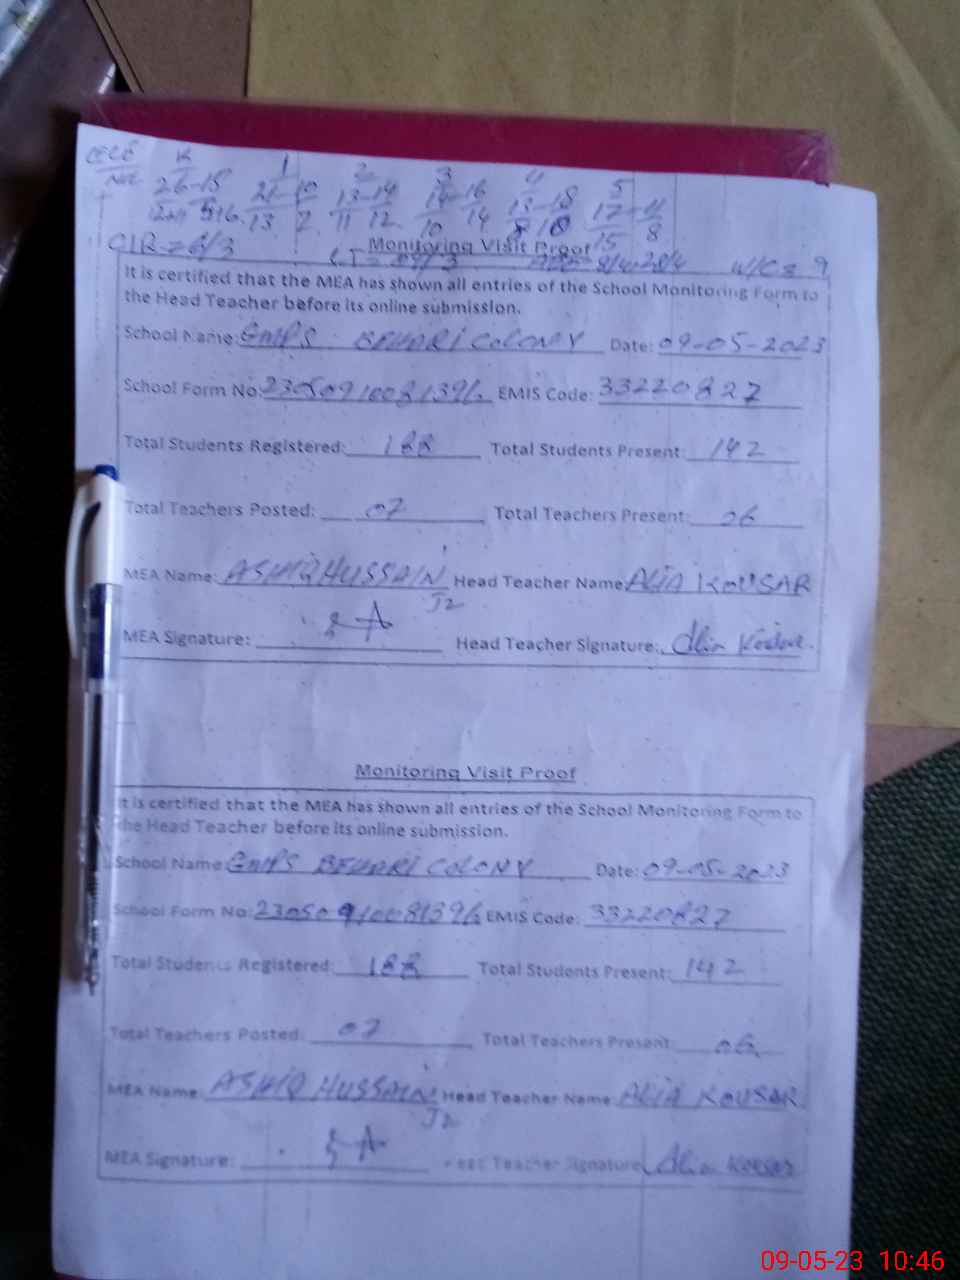 K 1 2 3 4 5
26-15 21-10 13-14 14-16 13-18 17-11
13 7 11 12 10 14 8 10 15 8
CIR = 6/3
Monitoring Visit Proof
It is certified that the MEA has shown all entries of the School Monitoring Form to
the Head Teacher before its online submission.
School Name: GMPS BEHARI COLONY Date: 09-05-2023
School Form No: 23050910081396 EMIS Code: 33220827
Total Students Registered: 188 Total Students Present: 142
Total Teachers Posted: 07 Total Teachers Present: 06
MEA Name: ASHIQ HUSSAIN Head Teacher Name: ALIA KOUSAR
J2
MEA Signature: Head Teacher Signature: Alia Kousar
Monitoring Visit Proof
It is certified that the MEA has shown all entries of the School Monitoring Form to
the Head Teacher before its online submission.
School Name GMPS BEHARI COLONY Date: 09-05-2023
School Form No: 23050910081396 EMIS Code: 33220827
Total Students Registered: 188 Total Students Present: 142
Total Teachers Posted: 07 Total Teachers Present: 06
MEA Name: ASHIQ HUSSAIN Head Teacher Name: ALIA KOUSAR
J2
MEA Signature: Head Teacher Signature Alia Kousar
09-05-23 10:46